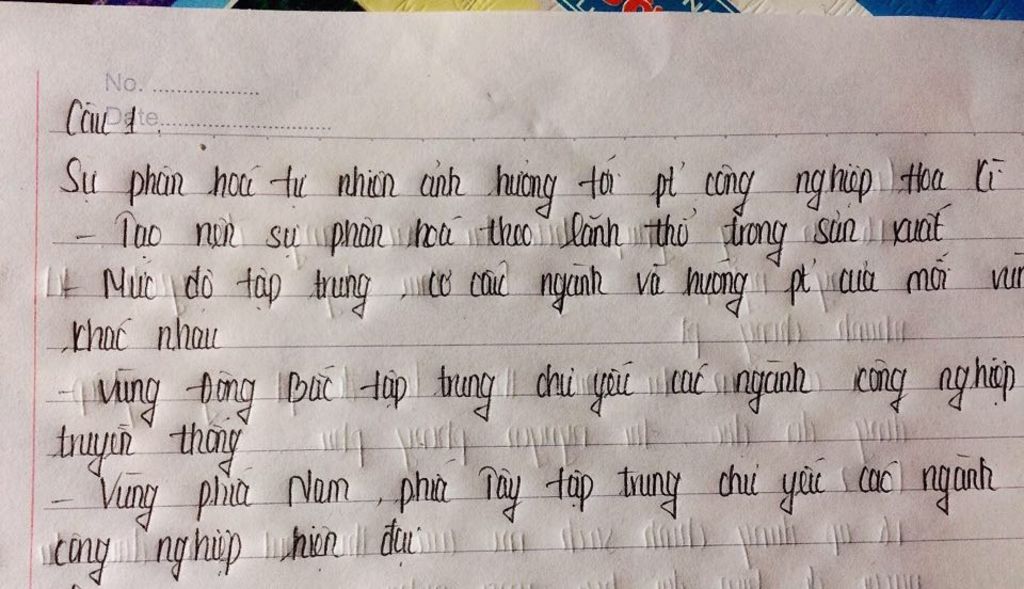 No. ....................
Date..............................
Câu 1.
Sự phân hoá tự nhiên ảnh hưởng tới pt' công nghiệp Hoa Kì
- Tạo nên sự phân hoá theo lãnh thổ trong sản xuất
+ Mức độ tập trung, cơ cấu ngành và hướng pt' của mỗi vùn
khác nhau
- Vùng Đông Bắc tập trung chủ yếu các ngành công nghiệp
truyền thống
- Vùng phía Nam, phía Tây tập trung chủ yếu các ngành
công nghiệp hiện đại